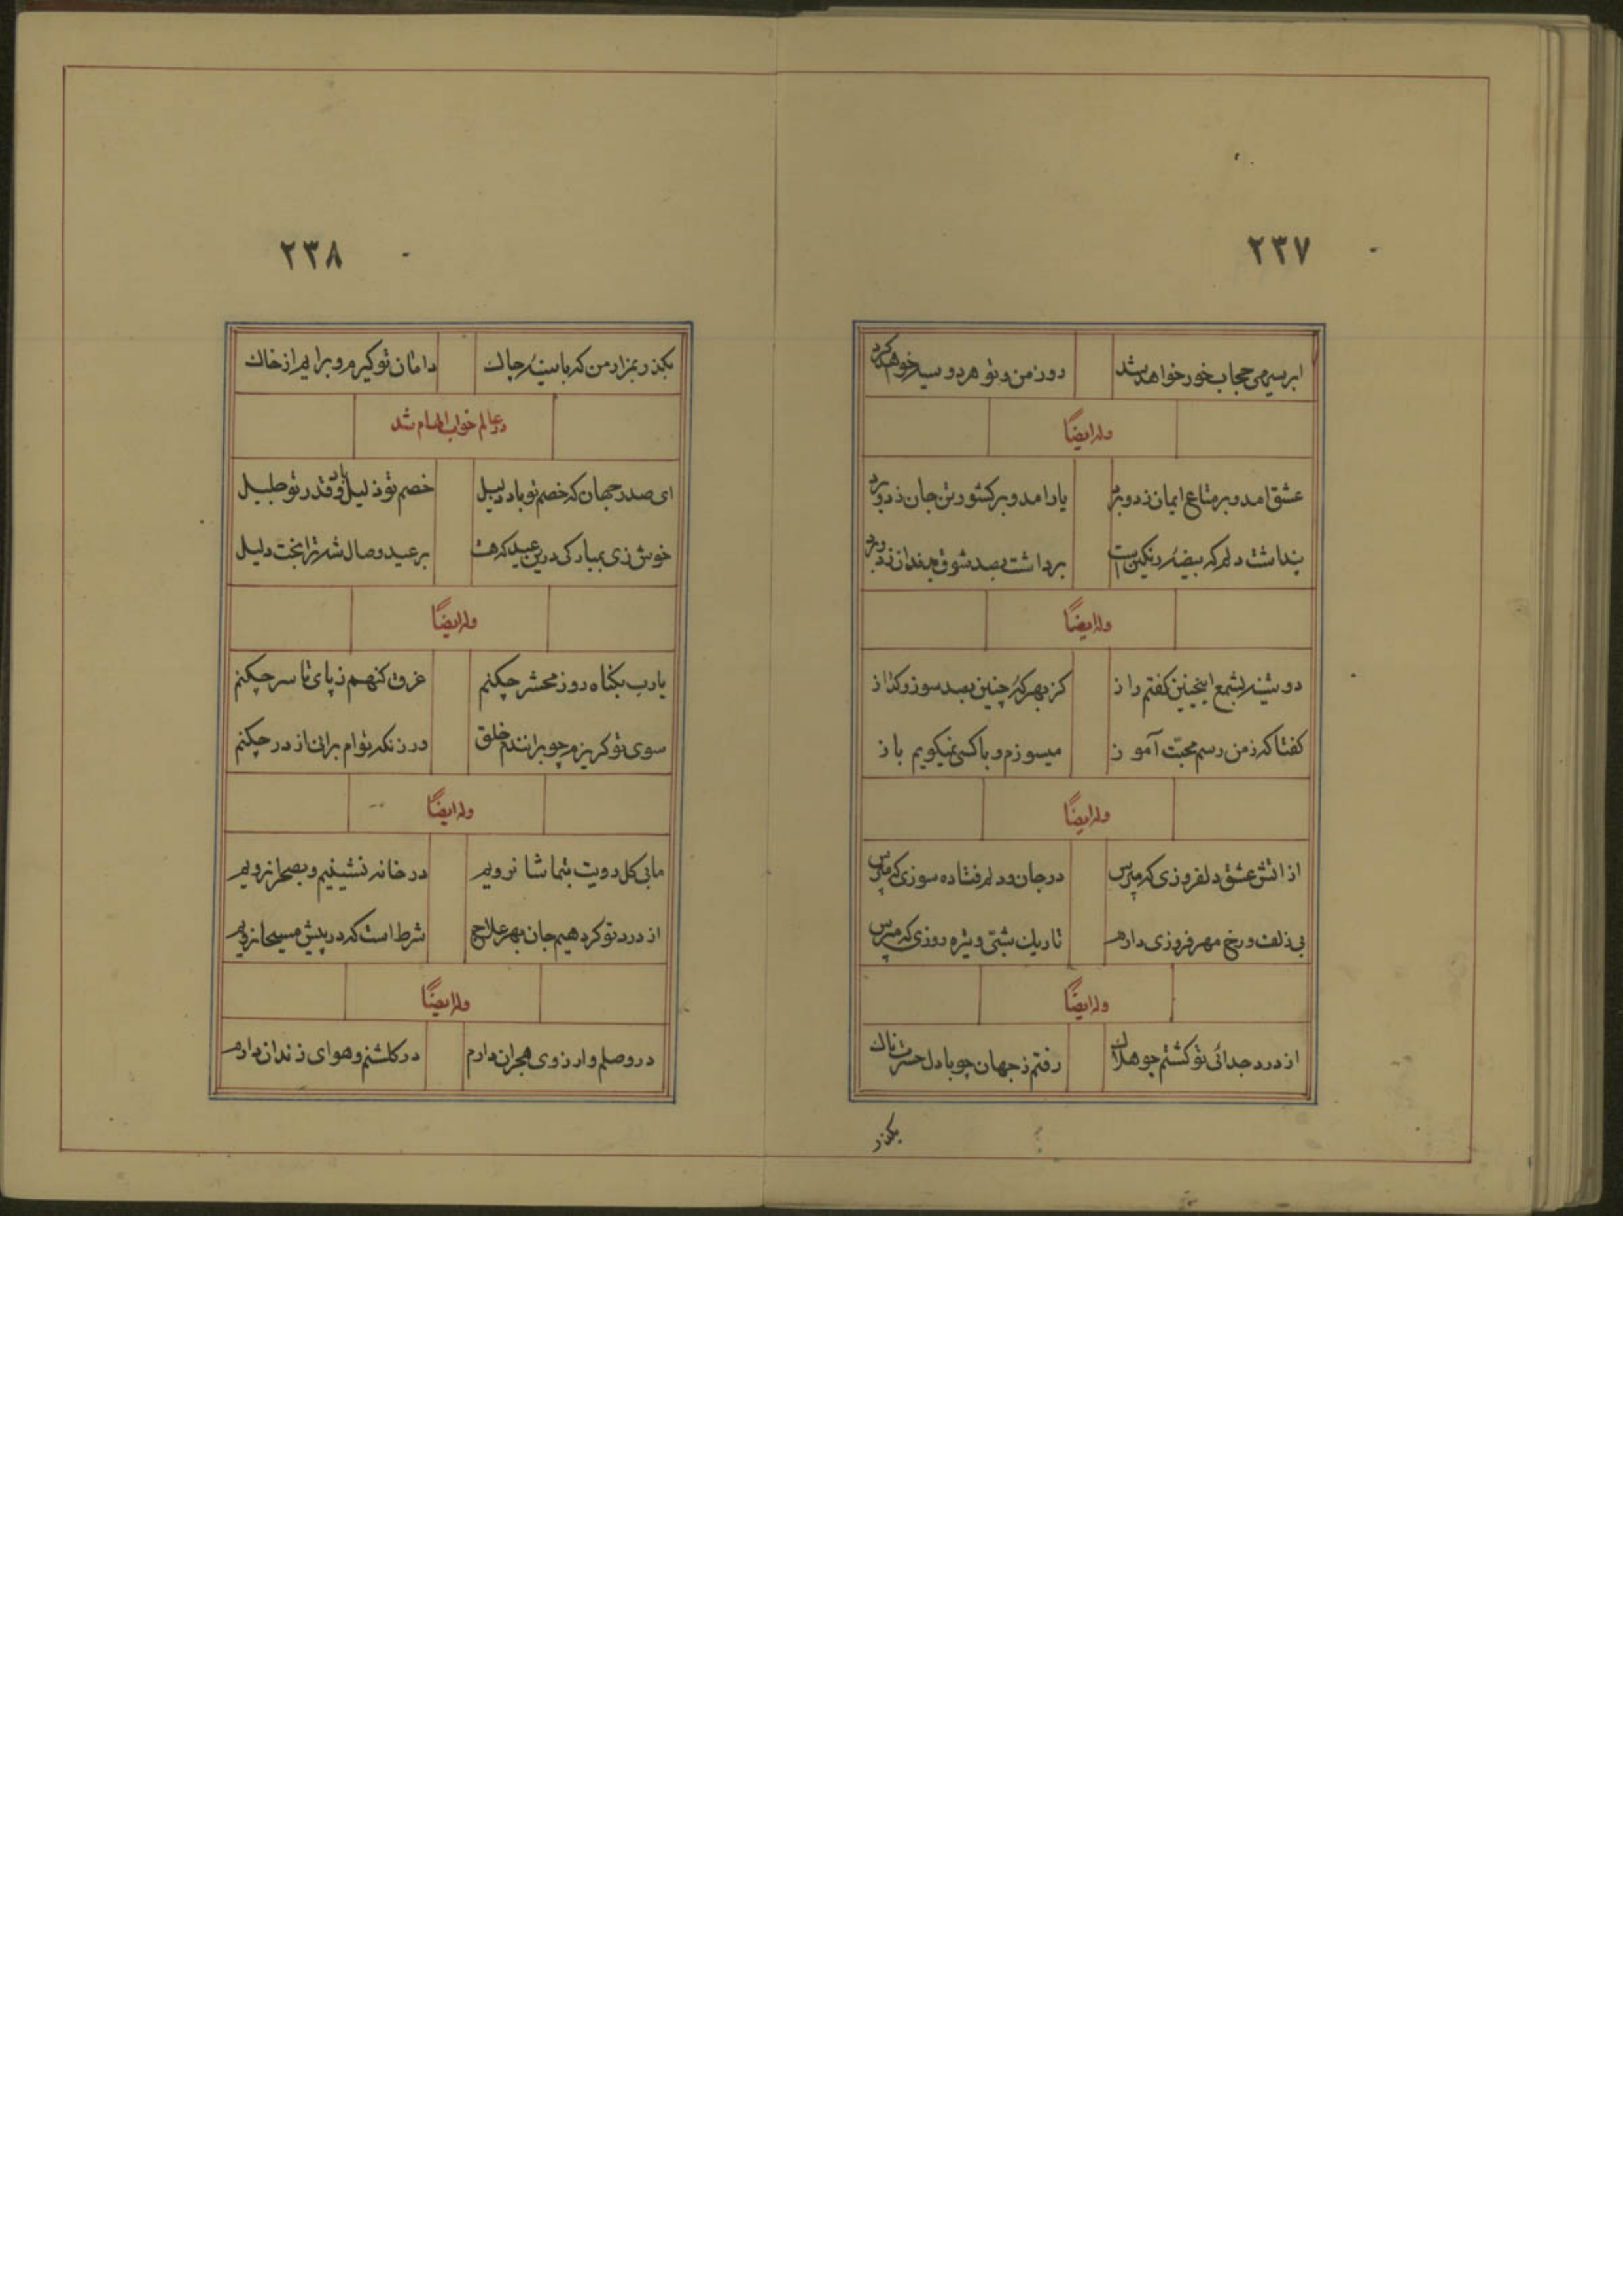 ۲۳۷
ابر سیهی حجاب خور خواهد شد روز من و تو هر دو سیه خواهد کرد
وله ایضاً
عشق امد و بر متاع ایمان زد و برد یار امد و بر کشور تن جان زد و برد
پنداشت دلم که بیضه رنکین است برداشت بصد شوق
وله ایضاً
دوشینه بشمع اینچنین کفتم راز کز بهر که چنین بصد سوز و کداز
کفتا که ز من رسم محبّت آموز میسوزم و با کسی نمیکویم باز
وله ایضاً
از اتش عشق دلفروزی که مپرس در جان و دلم فتاده سوزی که مپرس
بی زلف و رخ مهر فروزی دارم تاریك شبی و تیره روزی که مپرس
وله ایضاً
از درد جدائی تو کشتم چو هلاك رفتم ز جهان چو با دل حسرت ناك
بکذر
۲۳۸
بکذر بمزار من که با سینه چاك دامان تو کیرم و برایم از خاك
در عالم خواب الهام شد
ای صدر جهان که خصم تو باد ذلیل خصم تو ذلیل باد و قدر تو جلیل
خوش زی بمبارکی درین عید که هست بر عید وصال شه ترا بخت دلیل
وله ایضاً
یا رب بکناه روز محشر چکنم غرق کنهم ز پای تا سر چکنم
سوی تو کریزم چو برانندم خلق ور زنکه توام برانی از در چکنم
وله ایضاً
ما بی کل رویت بتماشا نرویم در خانه نشینیم و بصحرا نرویم
از درد تو کر دهیم جان بهر علاج شرط است که در پیش مسیحا نرویم
وله ایضاً
در وصلم و ارزوی هجران دارم در کلشنم و هوای زندان دارم